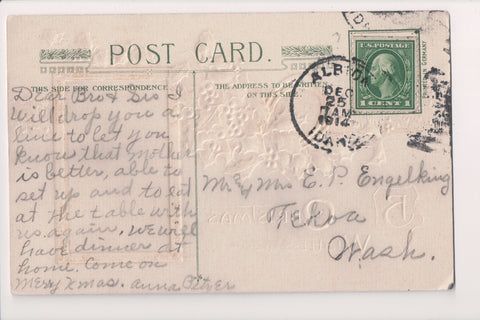 POST CARD.
THIS SIDE FOR CORRESPONDENCE
THE ADDRESS TO BE WRITTEN
ON THIS SIDE.
U.S. POSTAGE
1 CENT 1
GERMANY
ALBION
DEC
25
AM
1914
IDAHO
Dear Bro & Sis I
will drop you a
line to let you
know that mother
is better, able to
set up and to eat
at the table with
us again, we will
have dinner at
home. Come on
Merry Xmas. Anna
Mr & Mrs E. P. Engelking
Tekoa
Wash.